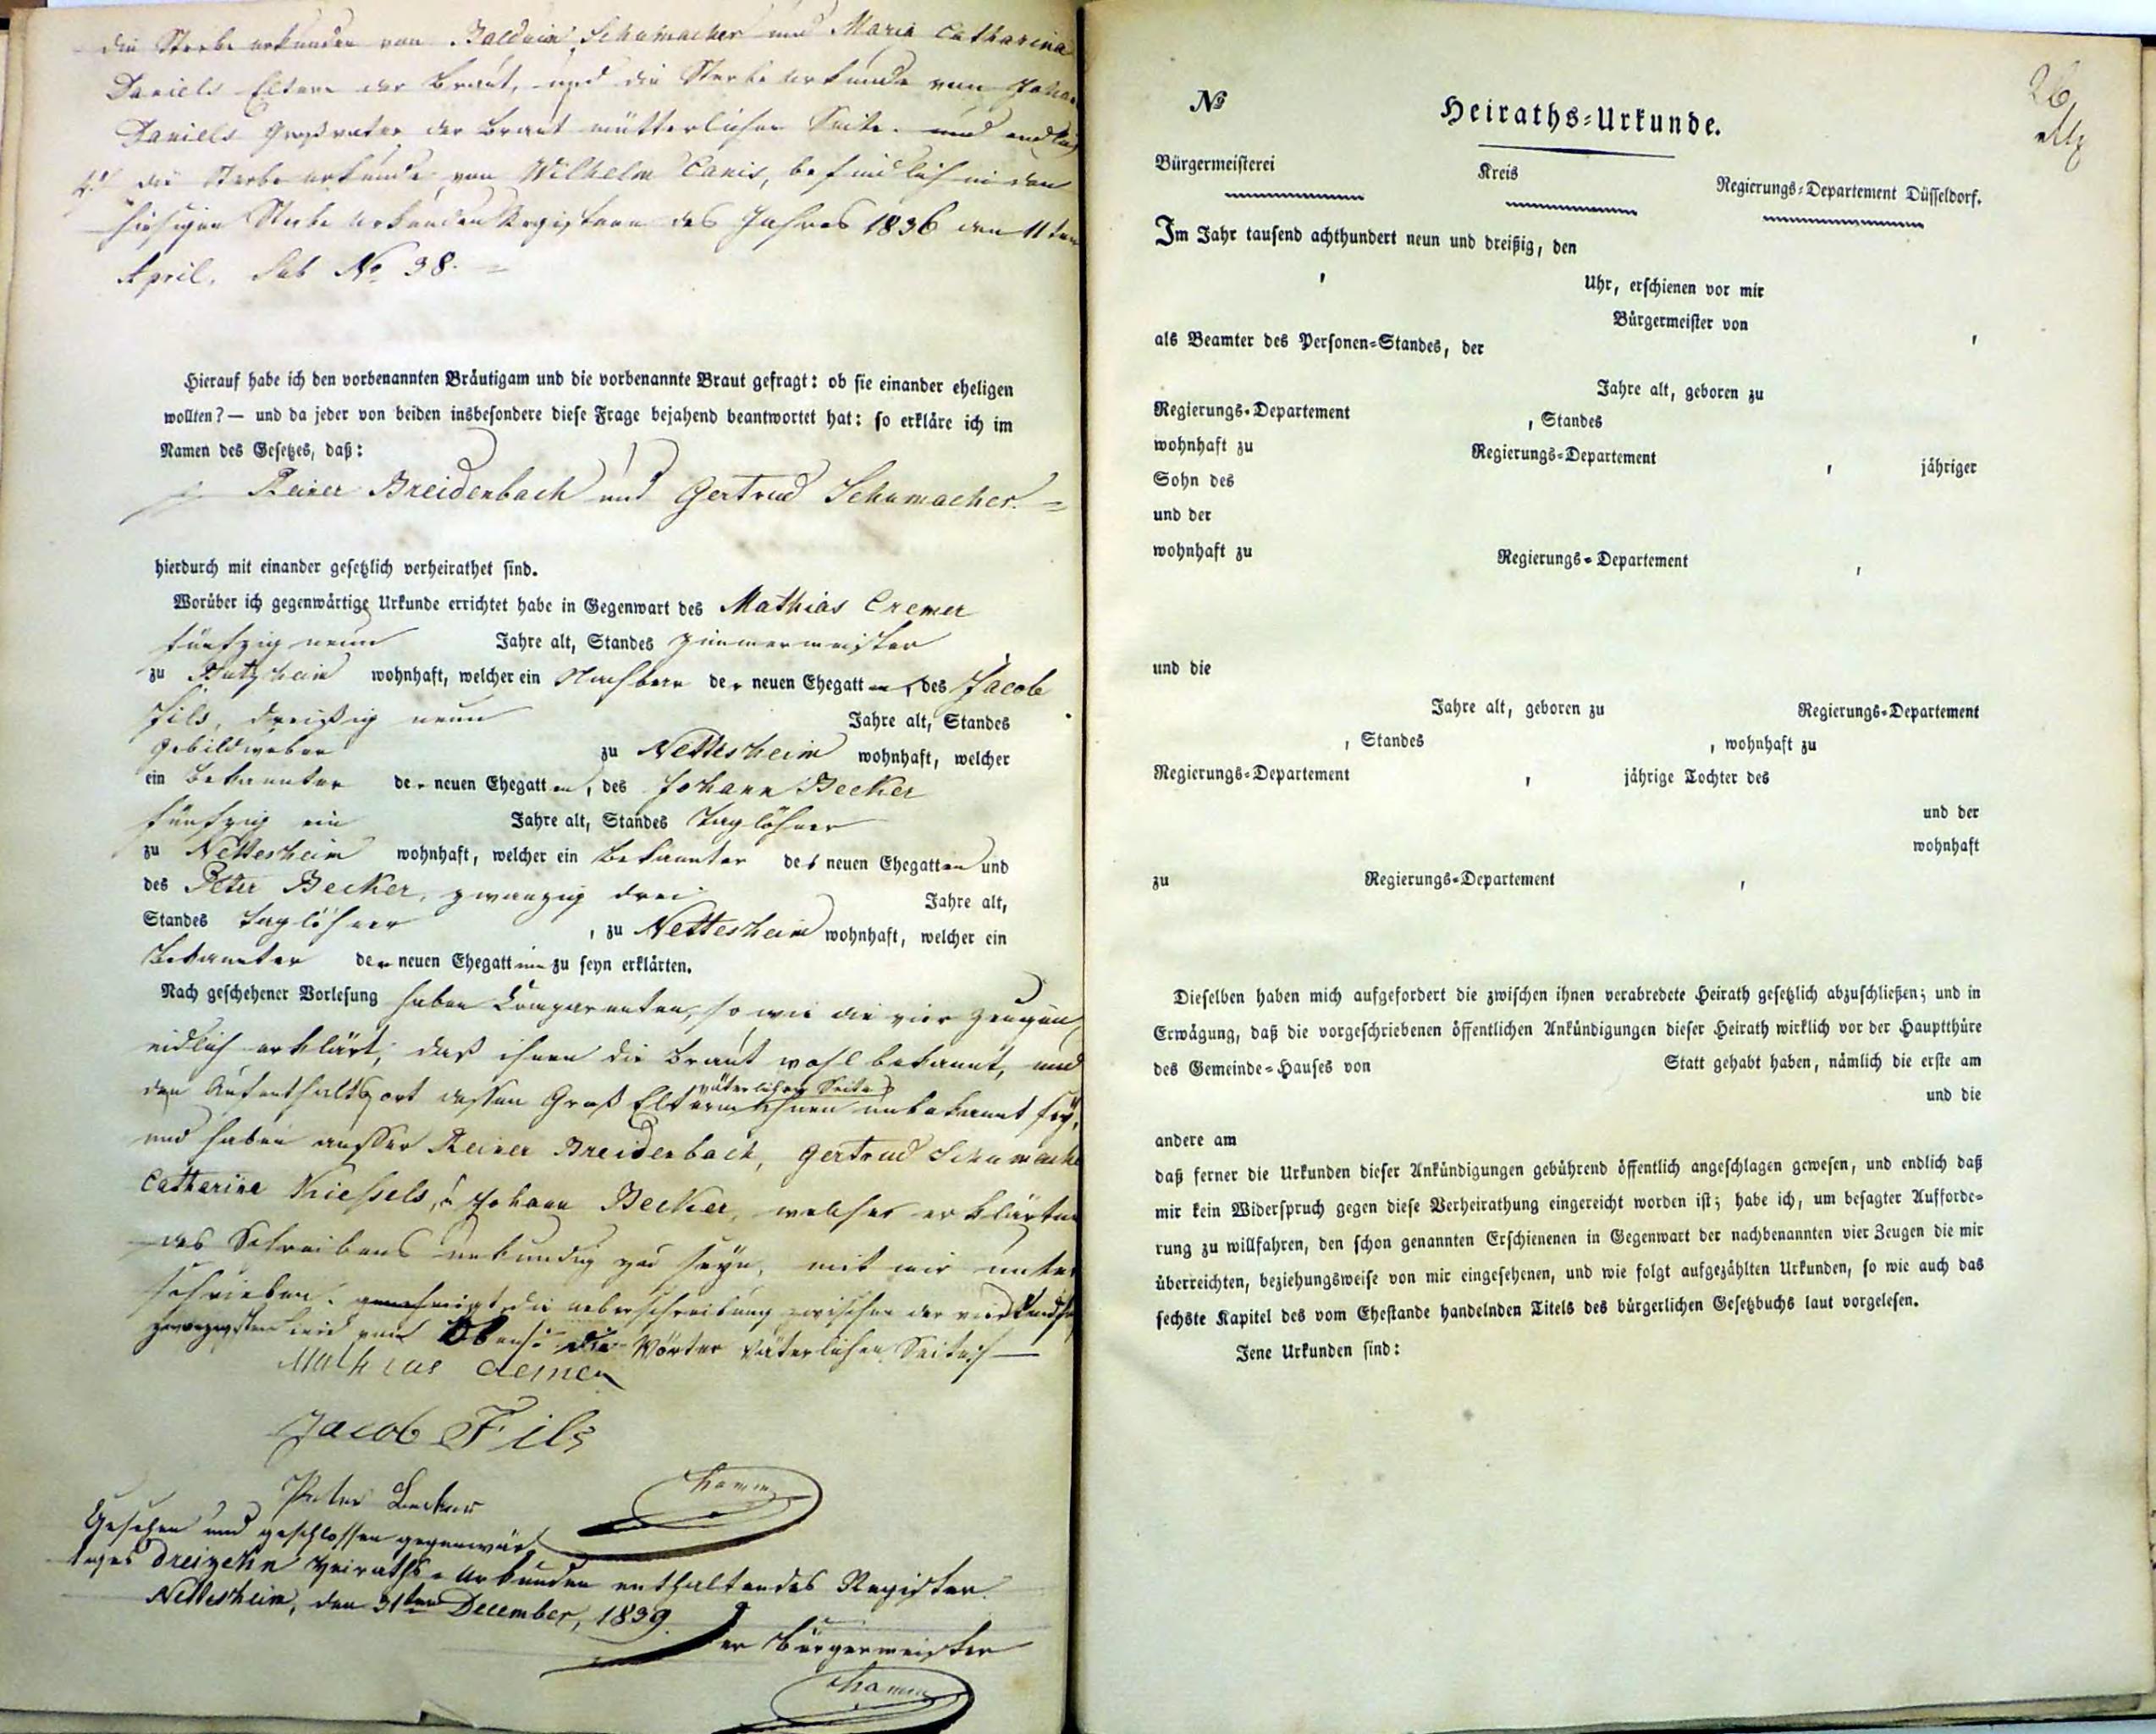 die Sterbe urkunden von Balduin Schumacher und Maria Catharina
Daniels Eltern der Braut, und die Sterbe urkunde von Johann
Daniells Großvater der Braut mütterlicher Seite. und endlich
4.) die Sterbe urkunde von Wilhelm Canis, befindlich in den
hiesigen Sterbe urkunden Registern des Jahres 1836 den 11ten
April. sub No. 38. =
Hierauf habe ich den vorbenannten Bräutigam und die vorbenannte Braut gefragt: ob sie einander eheligen
wollten? — und da jeder von beiden insbesondere diese Frage bejahend beantwortet hat: so erkläre ich im
Namen des Gesetzes, daß:
Reiner Breidenbach und Gertrud Schumacher. =
hierdurch mit einander gesetzlich verheirathet sind.
Worüber ich gegenwärtige Urkunde errichtet habe in Gegenwart des Mathias Cremer
fünfzig neun Jahre alt, Standes Zimmermeister
zu Butzheim wohnhaft, welcher ein Nachbar der neuen Ehegatten, des Jacob
Fils, dreißig neun Jahre alt, Standes
Gebildweber zu Nettesheim wohnhaft, welcher
ein Bekannter der neuen Ehegatten, des Johann Becker
fünfzig ein Jahre alt, Standes Taglöhner
zu Nettesheim wohnhaft, welcher ein Bekannter des neuen Ehegatten und
des Peter Becker, zwanzig drei Jahre alt,
Standes Taglöhner, zu Nettesheim wohnhaft, welcher ein
Bekannter der neuen Ehegattin zu seyn erklärten.
Nach geschehener Vorlesung haben Comparenten, so wie die vier Zeugen
eidlich erklärt, daß ihnen die Braut wohl bekannt, und
väterlicher Seite
den Aufenthaltsort dessen Groß Eltern ihnen unbekannt sey,
und haben ausser Reiner Breidenbach, Gertrud Schumacher
Catharina Kiessels, & Johann Becker, welche erklärten
des Schreibens unkundig zu seyn, mit mir unter
schrieben. genehmigt die ueberschreibung zwischen der
zwanzigsten von Oben: die Wörter väterlicher Seite
Mathias Cremer
Jacob Fils
Peter Becker
Hamm
Gesehen und geschlossen gegenwär
tiges dreizehn Heiraths-Urkunden enthaltendes Register.
Nettesheim, den 31ten December, 1839.
Der Bürgermeister
Hamm
26
No
Heiraths-Urkunde.
Bürgermeisterei Kreis Regierungs-Departement Düsseldorf.
Im Jahr tausend achthundert neun und dreißig, den
, Uhr, erschienen vor mir
Bürgermeister von ,
als Beamter des Personen-Standes, der
Jahre alt, geboren zu
Regierungs-Departement , Standes
wohnhaft zu Regierungs-Departement , jähriger
Sohn des
und der
wohnhaft zu Regierungs-Departement ,
und die
Jahre alt, geboren zu Regierungs-Departement
, Standes , wohnhaft zu
Regierungs-Departement , jährige Tochter des
und der
wohnhaft
zu Regierungs-Departement ,
Dieselben haben mich aufgefordert die zwischen ihnen verabredete Heirath gesetzlich abzuschließen; und in
Erwägung, daß die vorgeschriebenen öffentlichen Ankündigungen dieser Heirath wirklich vor der Hauptthüre
des Gemeinde-Hauses von Statt gehabt haben, nämlich die erste am
und die
andere am
daß ferner die Urkunden dieser Ankündigungen gebührend öffentlich angeschlagen gewesen, und endlich daß
mir kein Widerspruch gegen diese Verheirathung eingereicht worden ist; habe ich, um besagter Aufforde-
rung zu willfahren, den schon genannten Erschienenen in Gegenwart der nachbenannten vier Zeugen die mir
überreichten, beziehungsweise von mir eingesehenen, und wie folgt aufgezählten Urkunden, so wie auch das
sechste Kapitel des vom Ehestande handelnden Titels des bürgerlichen Gesetzbuchs laut vorgelesen.
Jene Urkunden sind: